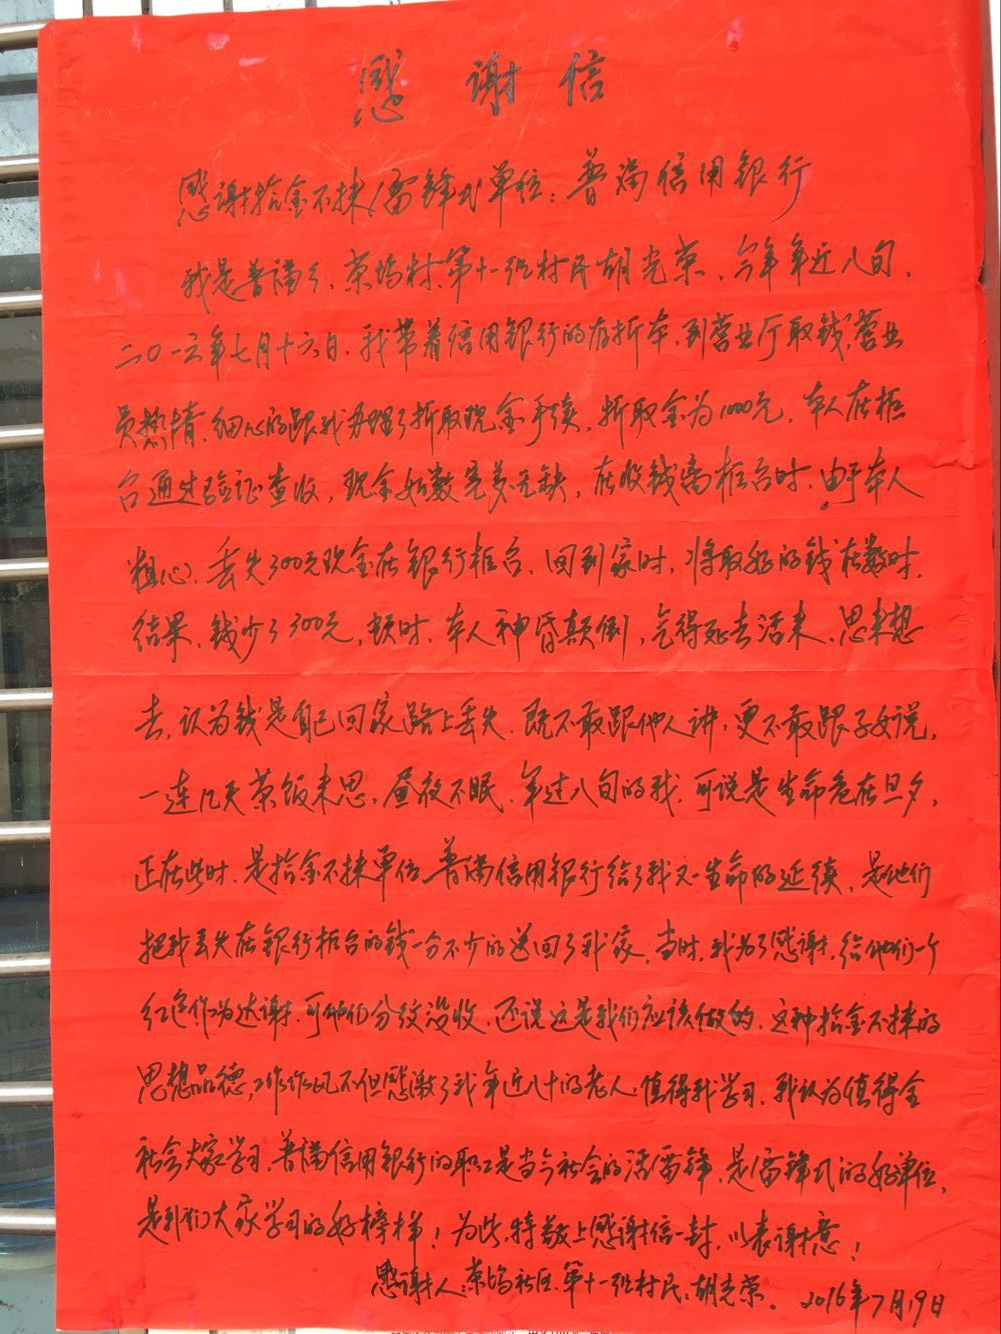 感谢信
感谢拾金不抹(雷锋式)单位：普满信用银行
我是普满乡、茶坞村、第十一组村民胡光荣，今年年近八旬，
二〇一六年七月十六日，我带着信用银行的存折本，到营业厅取钱，营业
员热情、细心的跟我办理了折取现金手续，折取金为1000元，本人在柜
台通过验证查收，现金如数完美无缺，在收钱离柜台时，由于本人
粗心，丢失300元现金在银行柜台，回到家时，将取好的钱在数时，
结果，钱少了300元，顿时，本人神昏颠倒，气得死去活来，思来想
去，认为钱是自己回家路上丢失，既不敢跟他人讲，更不敢跟子女说，
一连几天茶饭未思，昼夜不眠，年过八旬的我，可说是生命危在旦夕，
正在此时，是拾金不抹单位普满信用银行给了我又一生命的延续，是他们
把我丢失在银行柜台的钱一分不少的送回了我家，当时，我为了感谢，给他们一个
红包作为达谢，可他们分纹没收，还说这是我们应该做的，这种拾金不抹的
思想品德，工作作风不但感激了我年近八十的老人，值得我学习，我认为值得全
社会大家学习，普满信用银行的职工是当今社会的活雷锋，是雷锋式的好单位，
是我们大家学习的好榜样！为此，特敬上感谢信一封，以表谢意！
感谢人：茶坞社区第十一组村民：胡光荣。2016年7月19日